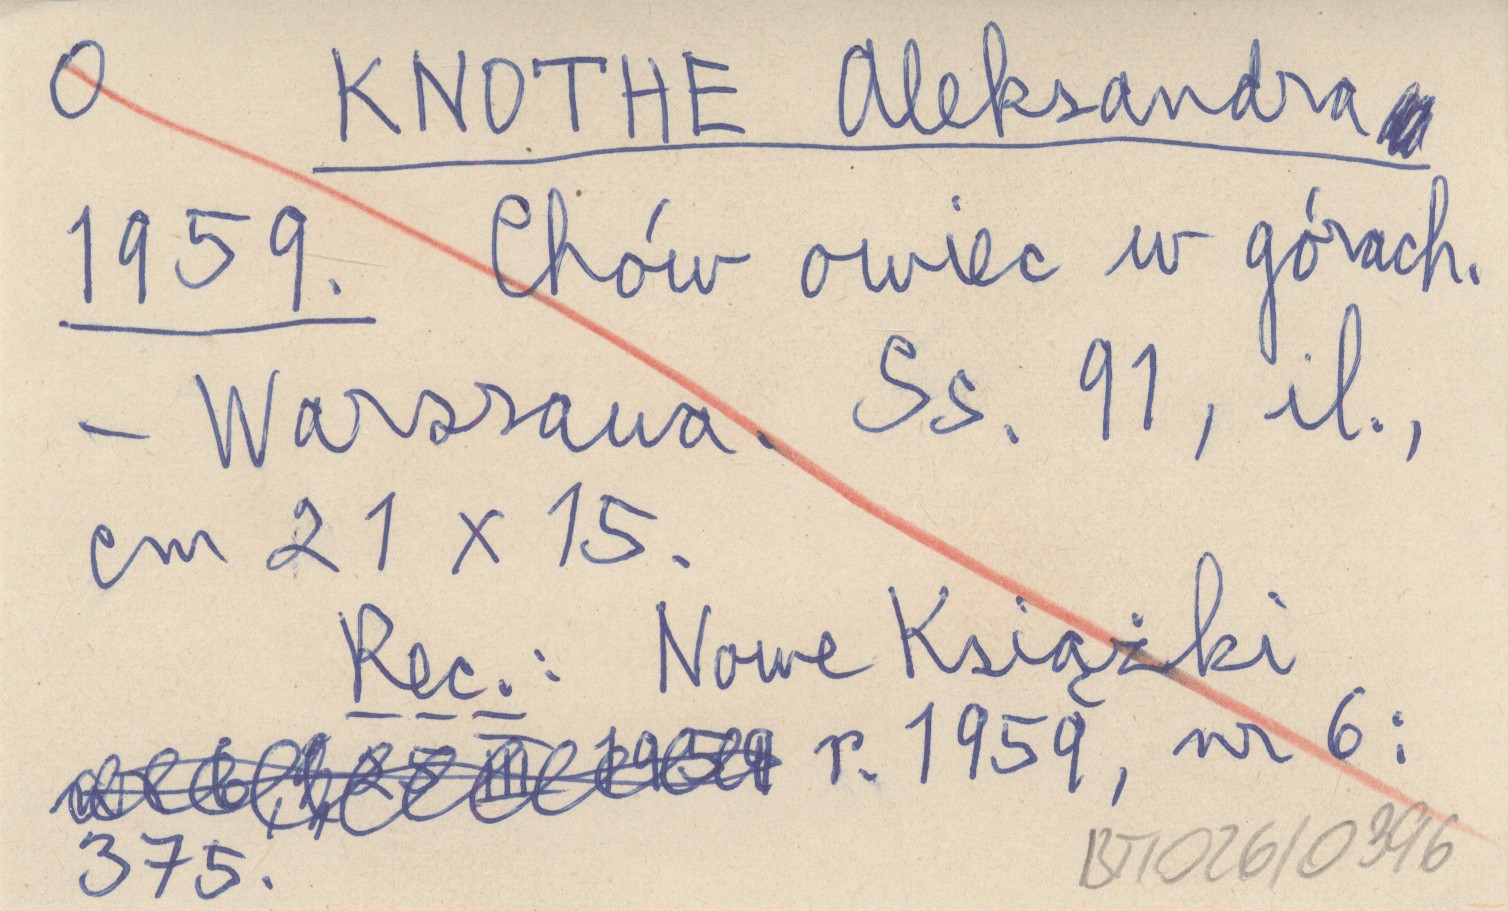 O KNOTHE Aleksandra
1959. Chów owiec w górach.
- Warszawa. Ss. 91, il.,
cm 21 x 15.
Rec.: Nowe Książki
r. 1959, nr 6:
375.
BTT026/0396